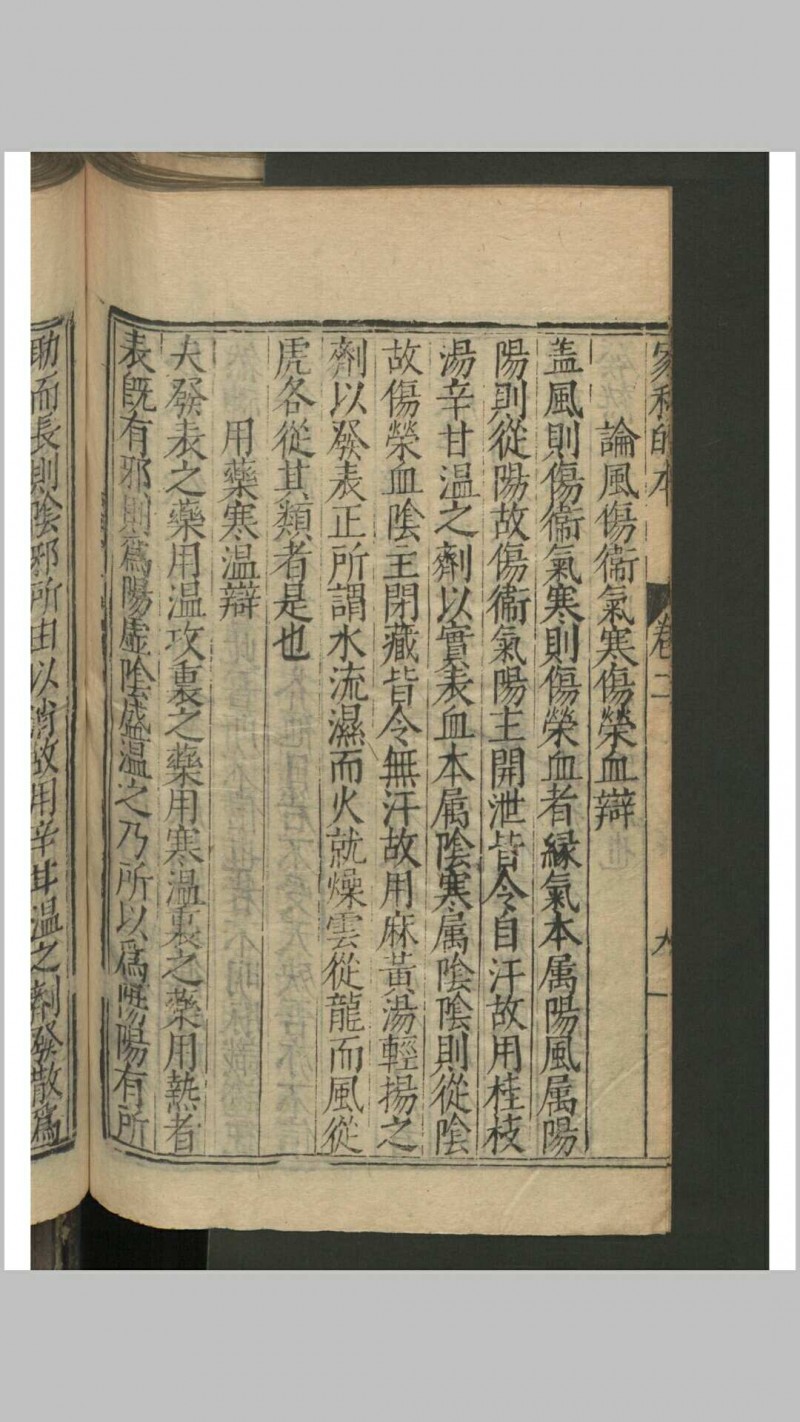 家秘的本 卷二 九
論風傷衞氣寒傷榮血辯
葢風則傷衞氣寒則傷榮血者緣氣本属陽風属陽
陽則從陽故傷衞氣陽主開泄皆令自汗故用桂枝
湯辛甘温之劑以實表血本属陰寒属陰陰則從陰
故傷榮血陰主閉藏皆令無汗故用麻黃湯輕揚之
劑以發表正所謂水流濕而火就燥雲從龍而風從
虎各從其類者是也
用藥寒温辯
夫發表之藥用温攻裏之藥用寒温裏之藥用熱者
表旣有邪則爲陽虛陰盛温之乃所以爲陽陽有所
助而長則陰邪所由以消故用辛甘温之劑發散爲